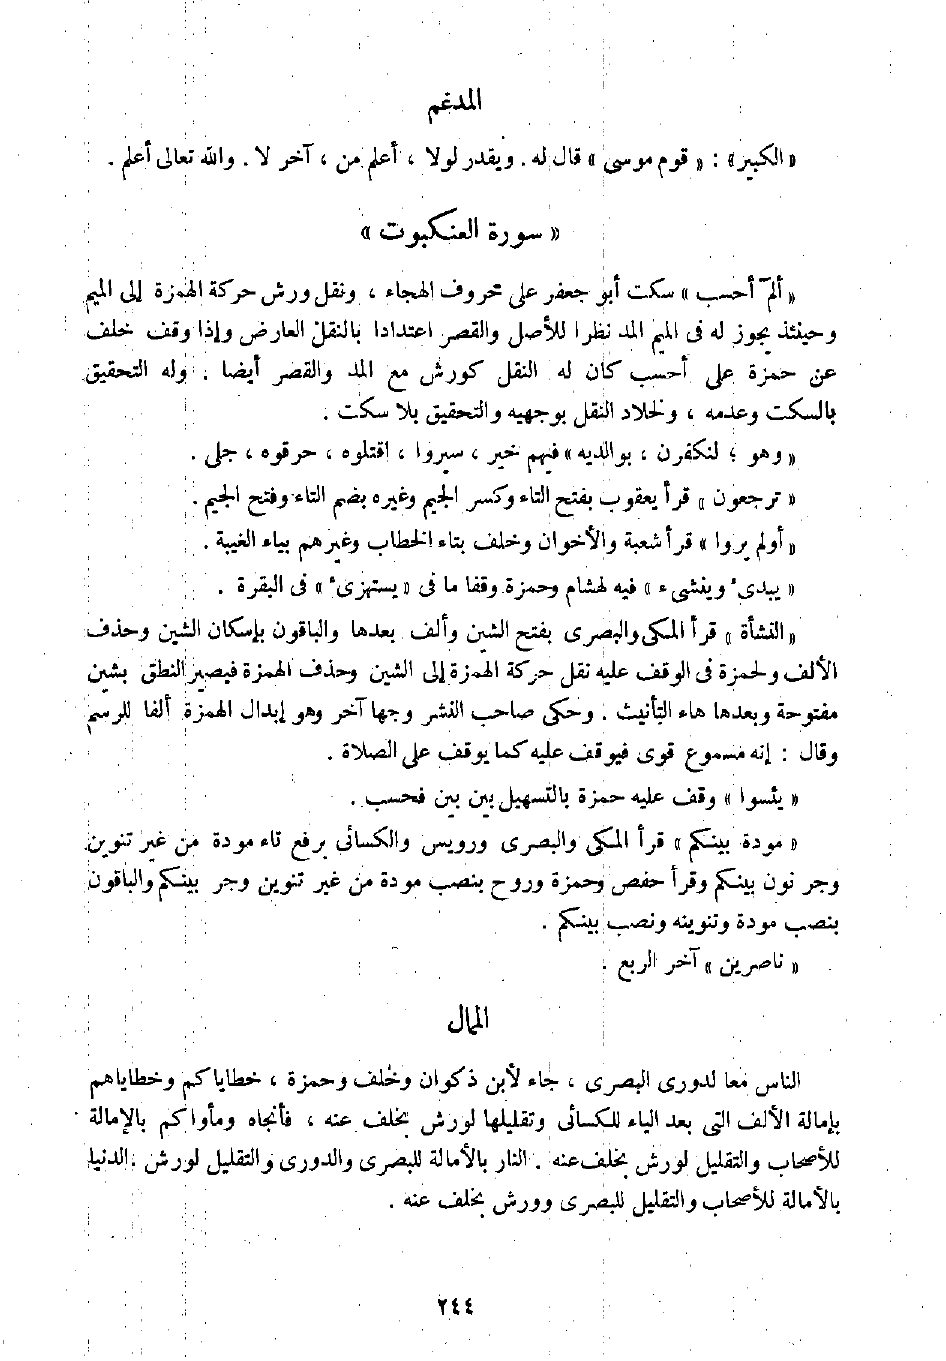 المدغم
« الكبير» : « قوم موسى » قال له . ويقدر لولا ، أعلم من ، آخر لا . والله تعالى أعلم .
« سورة العنكبوت »
« ألم أحسب » سكت أبو جعفر على حروف الهجاء ، ونقل ورش حركة الهمزة إلى الميم
وحينئذ يجوز له فى الميم المد نظرا للأصل والقصر اعتدادا بالنقل العارض وإذا وقف خلف
عن حمزة على أحسب كان له النقل كورش مع المد والقصر أيضا . وله التحقيق
بالسكت وعدمه ، ولخلاد النقل بوجهيه والتحقيق بلا سكت .
« وهو ؛ لنكفرن ، بوالديه» فيهم خير ، سيروا ، اقتلوه ، حرقوه ، جلى .
« ترجعون » قرأ يعقوب بفتح التاء وكسر الجيم وغيره بضم التاء وفتح الجيم .
« أولم يروا » قرأ شعبة والأخوان وخلف بتاء الخطاب وغيرهم بياء الغيبة .
« يبدىء وينشىء » فيه لهشام وحمزة وقفا ما فى « يستهزىء » فى البقرة .
« النشأة » قرأ المكى والبصرى بفتح الشين وألف بعدها والباقون بإسكان الشين وحذف
الألف ولحمزة فى الوقف عليه نقل حركة الهمزة إلى الشين وحذف الهمزة فيصير النطق بشين
مفتوحة وبعدها هاء التأنيث . وحكى صاحب النشر وجها آخر وهو إبدال الهمزة ألفا للرسم
وقال : إنه مسموع قوى فيوقف عليه كما يوقف على الصلاة .
« يئسوا » وقف عليه حمزة بالتسهيل بين بين فحسب .
« مودة بينكم » قرأ المكى والبصرى ورويس والكسائى برفع تاء مودة من غير تنوين
وجر نون بينكم وقرأ حفص وحمزة وروح بنصب مودة من غير تنوين وجر بينكم والباقون
بنصب مودة وتنوينه ونصب بينكم .
« ناصرين » آخر الربع .
الممال
الناس معا لدورى البصرى ، جاء لأبن ذكوان وخلف وحمزة ، خطاياكم وخطاياهم
بإمالة الألف التى بعد الياء للكسائى وتقليلها لورش بخلف عنه ، فأنجاه ومأواكم بالإمالة
للأصحاب والتقليل لورش بخلف عنه . النار بالأمالة للبصرى والدورى والتقليل لورش . الدنيا
بالأمالة للأصحاب والتقليل للبصرى وورش بخلف عنه .
٢٤٤